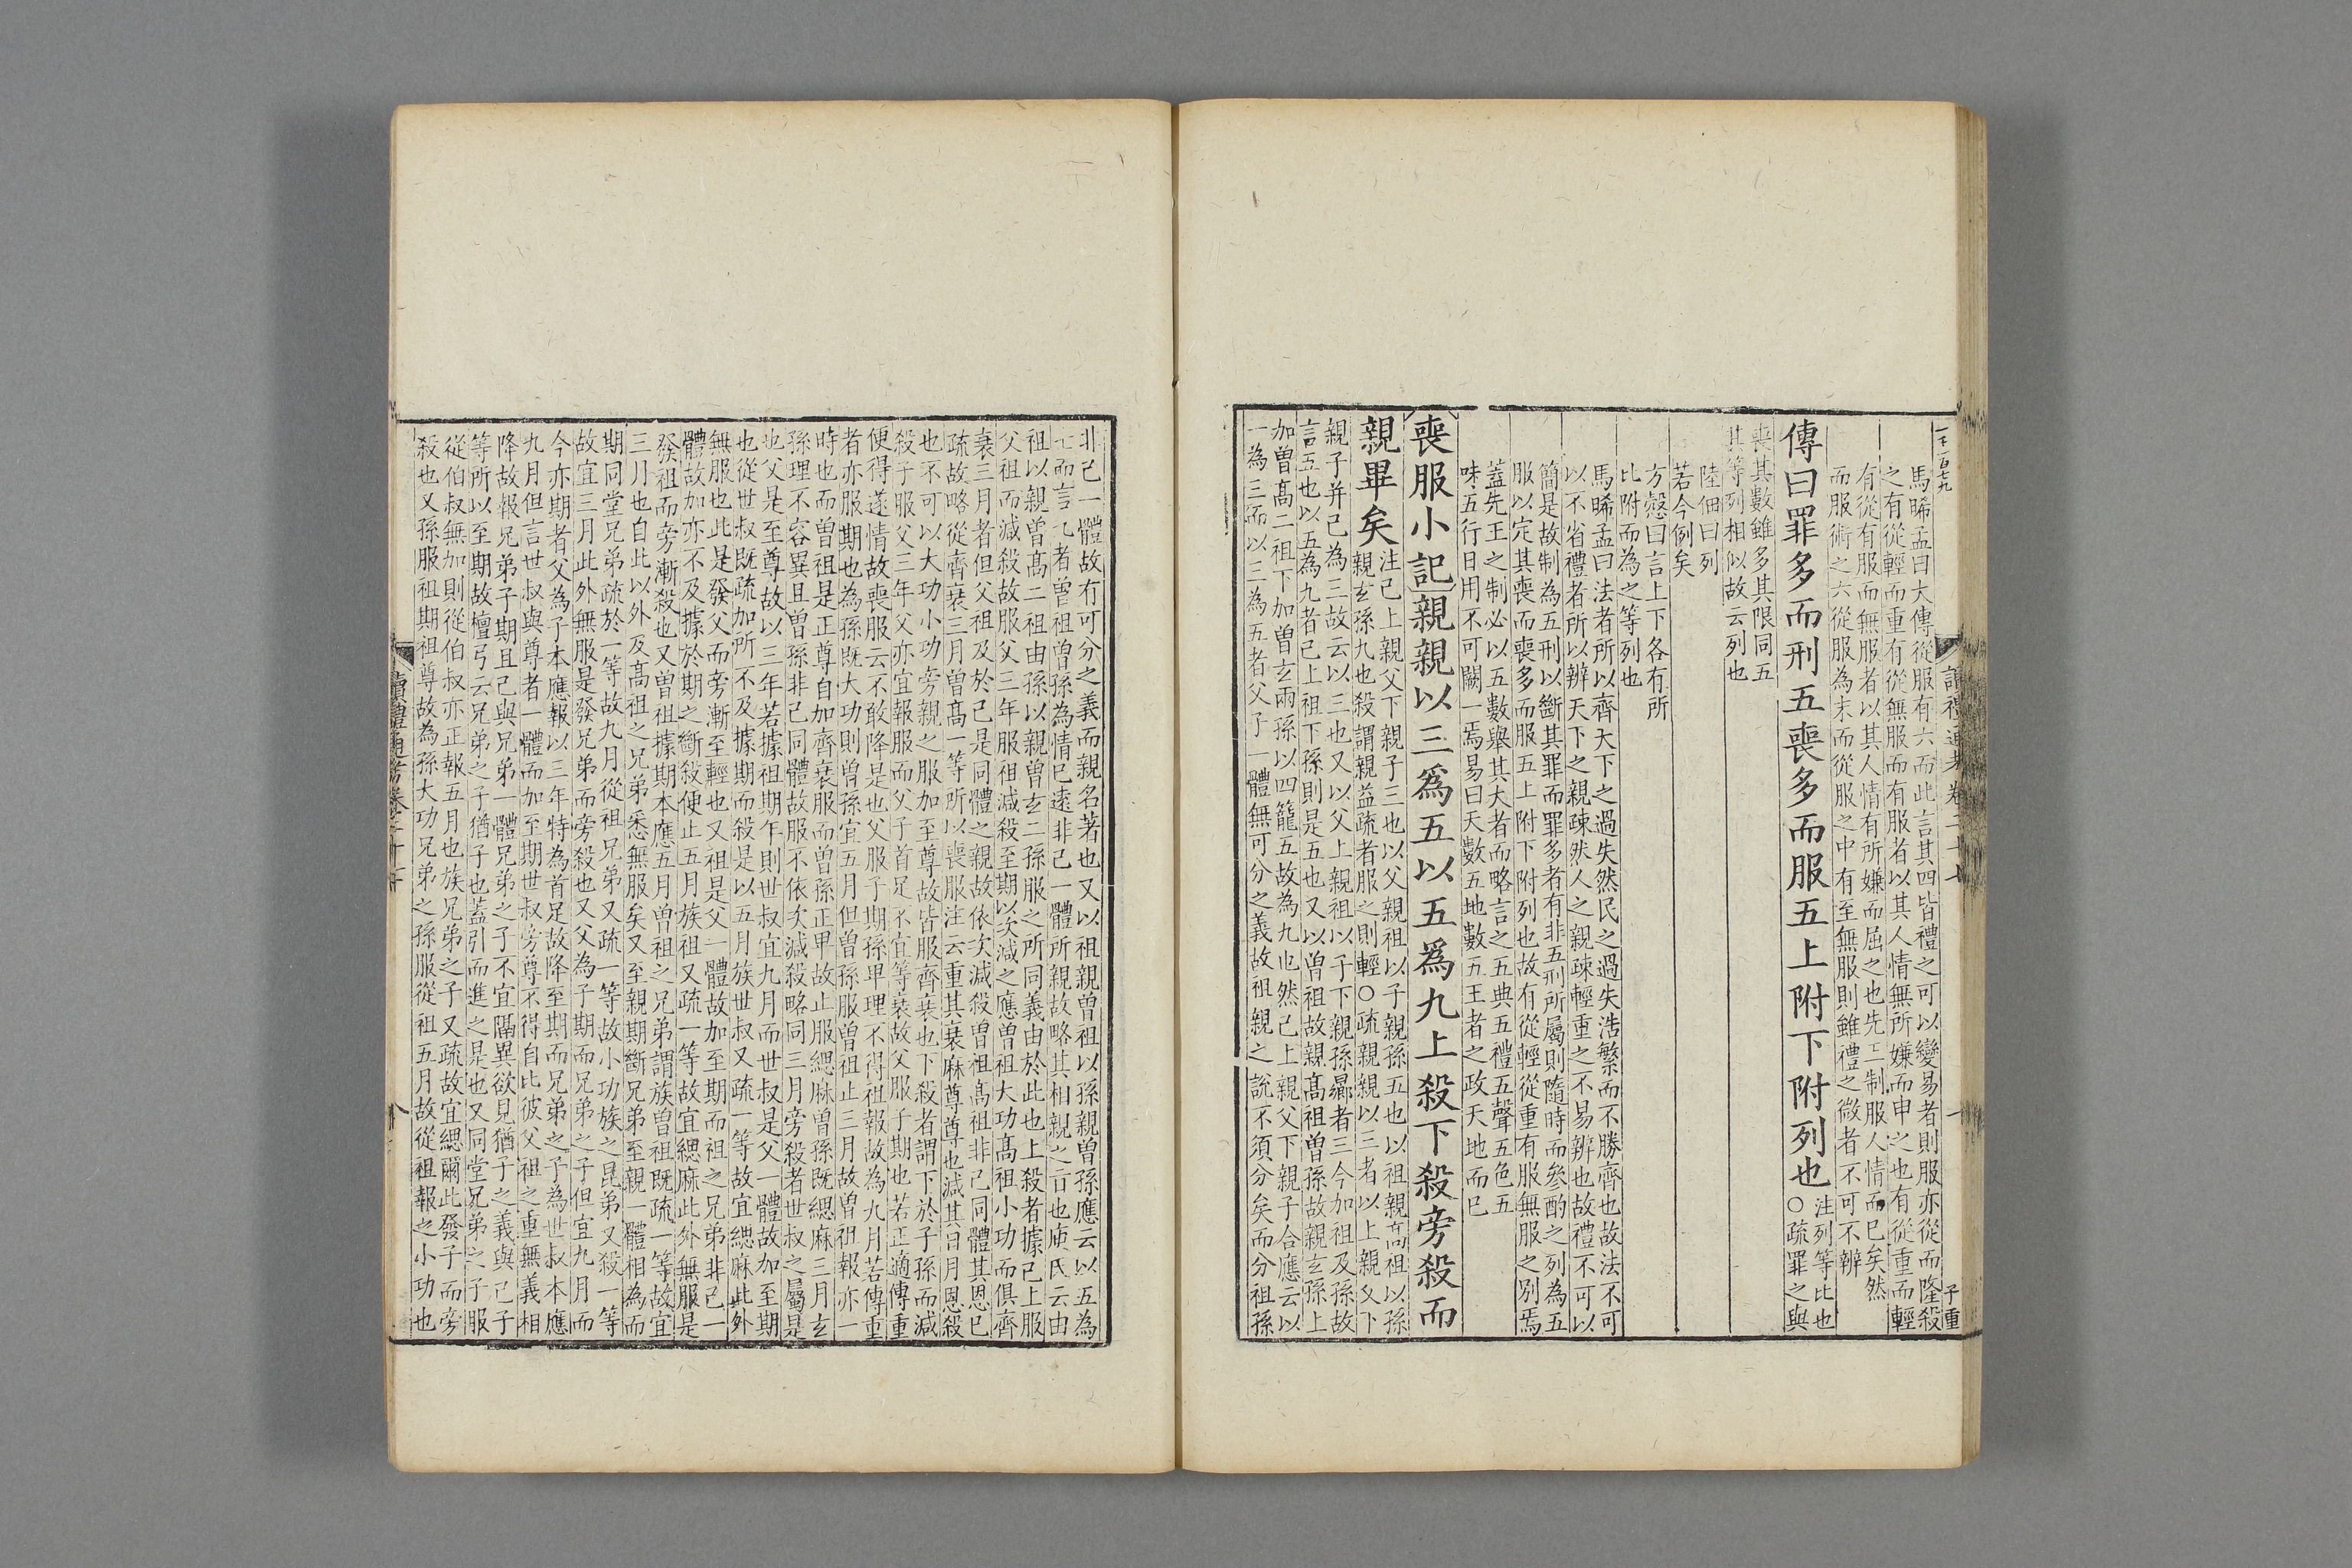 馬晞孟曰大傳從服有六而此言其四皆禮之可以變易者則服亦從而隆殺
之有從輕而重有從無服而有服者以其人情無所嫌而申之也有從重而輕
有從有服而無服者以其人情有所嫌而屈之也先王制服人情而已矣然
而服術之六從服為末而從服之中有至無服則雖禮之微者不可不辨
傳曰罪多而刑五喪多而服五上附下附列也
注列等比也
○疏罪之與
喪其數雖多其限同五
其等列相似故云列也
陸佃曰列
若今例矣
方慤曰言上下各有所
比附而為之等列也
馬晞孟曰法者所以齊天下之過失然民之過失浩繁而不勝齊也故法不可
以不省禮者所以辨天下之親疎然人之親疎輕重之不易辨也故禮不可以
簡是故制為五刑以斷其罪而罪多者有非五刑所屬則隨時而參酌之列為五
服以定其喪而喪多而服五上附下附列也故有從輕從重有服無服之別焉
蓋先王之制必以五數舉其大者而略言之五典五禮五聲五色五
味五行日用不可闕一焉易曰天數五地數五王者之政天地而已
喪服小記親親以三爲五以五爲九上殺下殺旁殺而
親畢矣
注己上親父下親子三也以父親祖以子親孫五也以祖親高祖以孫
親玄孫九也殺謂親益疏者服之則輕○疏親親以三者以上親父下
親子并己為三故云以三也又以父上親祖以子下親孫鄉者三今加祖及孫故
言五也以五為九者己上祖下孫則是五也又以曾祖故親高祖曾孫故親玄孫上
加曾高二祖下加曾玄兩孫以四籠五故為九也然己上親父下親子合應云以
一為三而以三為五者父子一體無可分之義故祖親之說不須分矣而分祖孫
非己一體故有可分之義而親名著也又以祖親曾祖以孫親曾孫應云以五為
七而言九者曾祖曾孫為情已遠非己一體所親故略其相親之言也庾氏云由
祖以親曾高二祖由孫以親曾玄二孫服之所同義由於此也上殺者據己上服
父祖而減殺故服父三年服祖減殺至期以次減之應曾祖大功高祖小功而俱齊
衰三月者但父祖及於己是同體之親故依次減殺曾祖高祖非己同體其恩已
疏故略從齊衰三月曾高一等所以喪服注云重其衰麻尊尊也減其日月恩殺
也不可以大功小功旁親之服加至尊故皆服齊衰也下殺者謂下於子孫而減
殺子服父三年父亦宜報服而父子首足不宜等衰故父服子期也若正適傳重
便得遂情故喪服云不敢降是也父服子期孫卑理不得祖報故為九月若傳重
者亦服期也為孫既大功則曾孫宜五月但曾孫服曾祖止三月故曾祖報亦一
時也而曾祖是正尊自加齊衰服而曾孫正卑故止服緦麻曾孫既緦麻三月玄
孫理不容異且曾孫非己同體故服不依次減殺略同三月旁殺者世叔之屬是
也父是至尊故以三年若據祖期年則世叔宜九月而世叔是父一體故加至期
也從世叔既疏加所不及據期而殺是以五月族世叔又疏一等故宜緦麻此外
無服也此是發父而旁漸至輕也又祖是父一體故加至期而祖之兄弟非己一
體故加亦不及據於期之斷殺便止五月族祖又疏一等故宜緦麻此外無服是
發祖而旁漸殺也又曾祖據期本應五月曾祖之兄弟謂族曾祖既疏一等故宜
三月也自此以外及高祖之兄弟悉無服矣又至親期斷兄弟至親一體相為而
期同堂兄弟疏於一等故九月從祖兄弟又疏一等故小功族之昆弟又殺一等
故宜三月此外無服是發兄弟而旁殺也又父為子期而兄弟之子但宜九月而
今亦期者父為子本應報以三年特為首足故降至期而兄弟之子為世叔本應
九月但言世叔與尊者一體而加至期世叔旁尊不得自比彼父祖之重無義相
降故報兄弟子期且己與兄弟一體兄弟之子不宜隔異欲見猶子之義與己子
等所以至期故檀弓云兄弟之子猶子也蓋引而進之是也又同堂兄弟之子服
從伯叔無加則從伯叔亦正報五月也族兄弟之子又疏故宜緦爾此發子而旁
殺也又孫服祖期祖尊故為孫大功兄弟之孫服從祖五月故從祖報之小功也
讀禮通考卷二十七